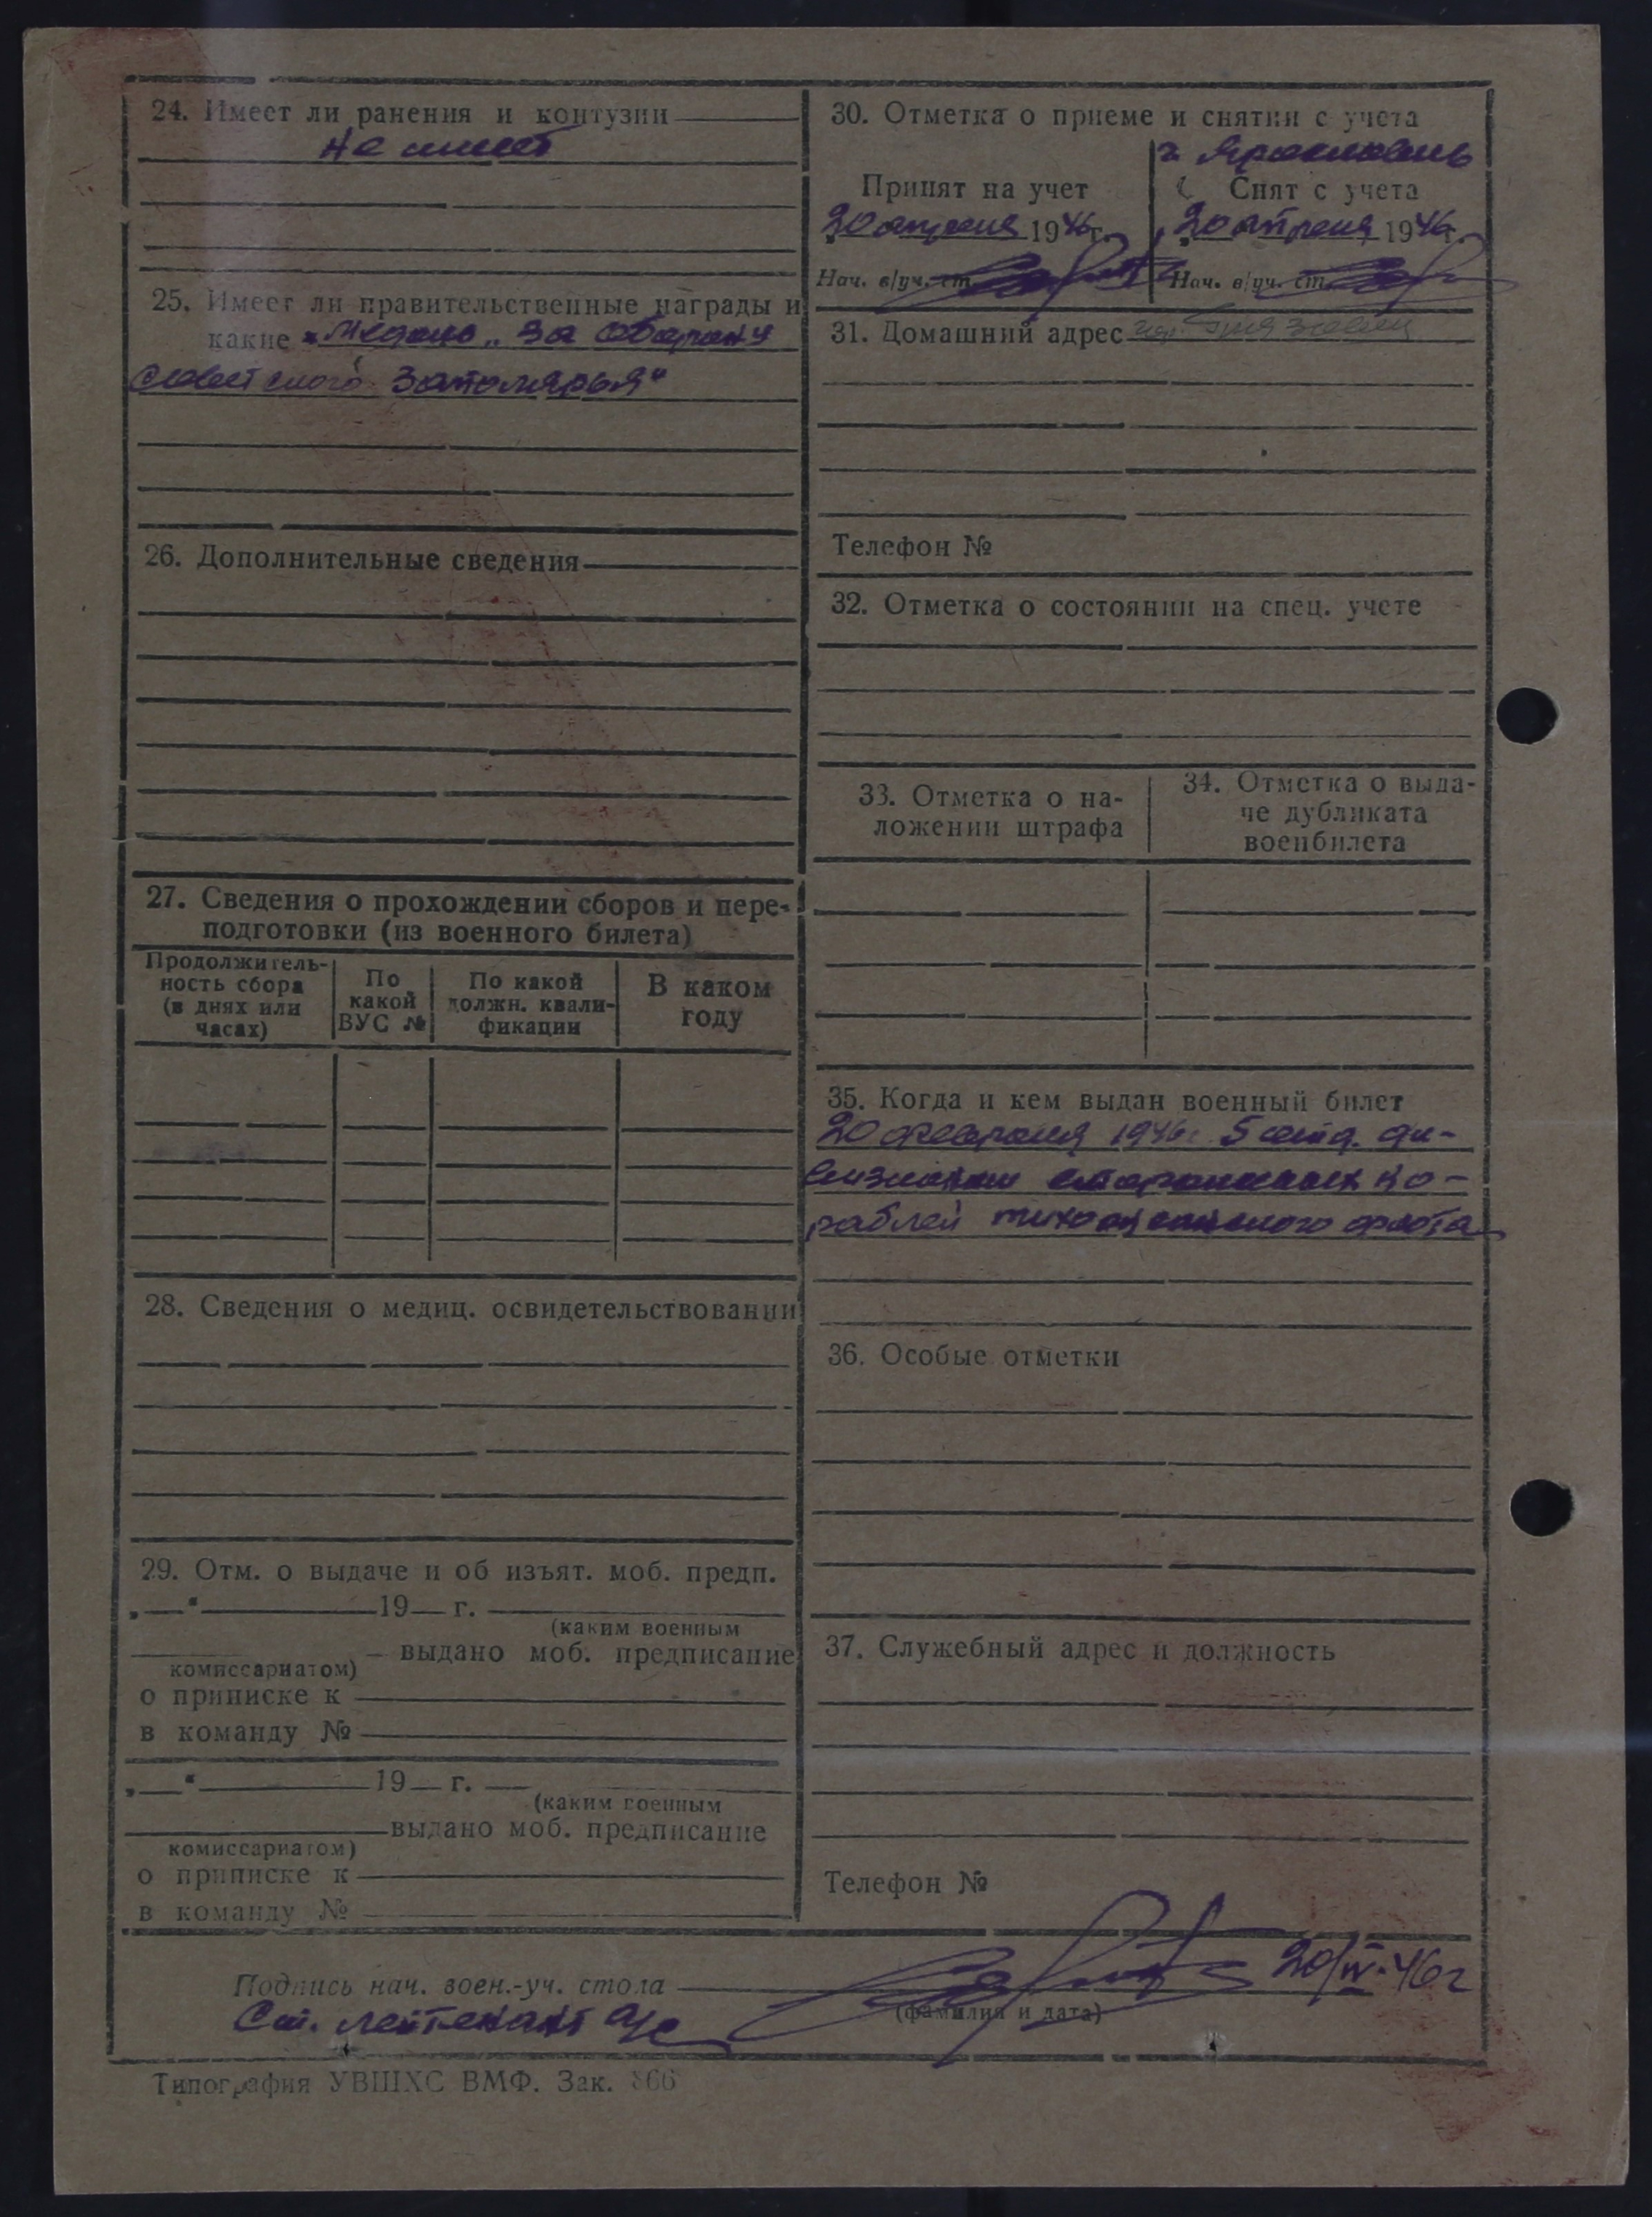 24. Имеет ли ранения и контузии
Не имеет
25. Имеет ли правительственные награды и
какие „Медаль „За Оборону
советского Заполярья"
26. Дополнительные сведения
27. Сведения о прохождении сборов и пере-
подготовки (из военного билета)
Продолжитель-
ность сбора
(в днях или
часах)
По
какой
ВУС №
По какой
должн. квали-
фикации
В каком
году
28. Сведения о медиц. освидетельствовании
29. Отм. о выдаче и об изъят. моб. предп.
„ “ 19 г.
(каким военным
выдано моб. предписание
комиссариатом)
о приписке к
в команду №
„ “ 19 г.
(каким военным
выдано моб. предписание
комиссариатом)
о приписке к
в команду №
30. Отметка о приеме и снятии с учета
г. Ярославль
Принят на учет
Снят с учета
20 апреля 1946 г.
20 апреля 1946 г.
Нач. в/уч. ст.
Нач. в/уч. ст.
31. Домашний адрес
Телефон №
32. Отметка о состоянии на спец. учете
33. Отметка о на-
ложении штрафа
34. Отметка о выда-
че дубликата
военбилета
35. Когда и кем выдан военный билет
20 февраля 1946г. 5 отд. ди-
визионом сторожевых ко-
раблей тихоокеанского флота
36. Особые отметки
37. Служебный адрес и должность
Телефон №
Подпись нач. воен.-уч. стола
20/IV-46г
(фамилия и дата)
Ст. лейтенант а/с
Типография УВШХС ВМФ. Зак. 866